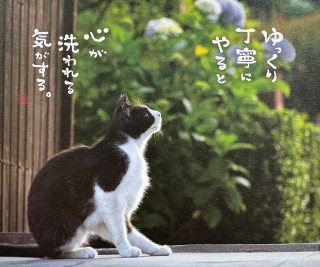 ゆっくり
丁寧に
やると
心が
洗われる
気がする。